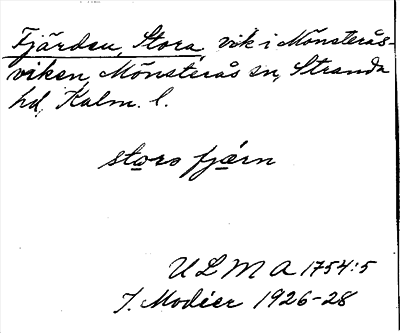 Fjärden, Stora, vik i Mönsterås-
viken, Mönsterås sn, Stranda
hd, Kalm. l.
storo fjærn
ULMA 1754:5
I. Modéer 1926-28